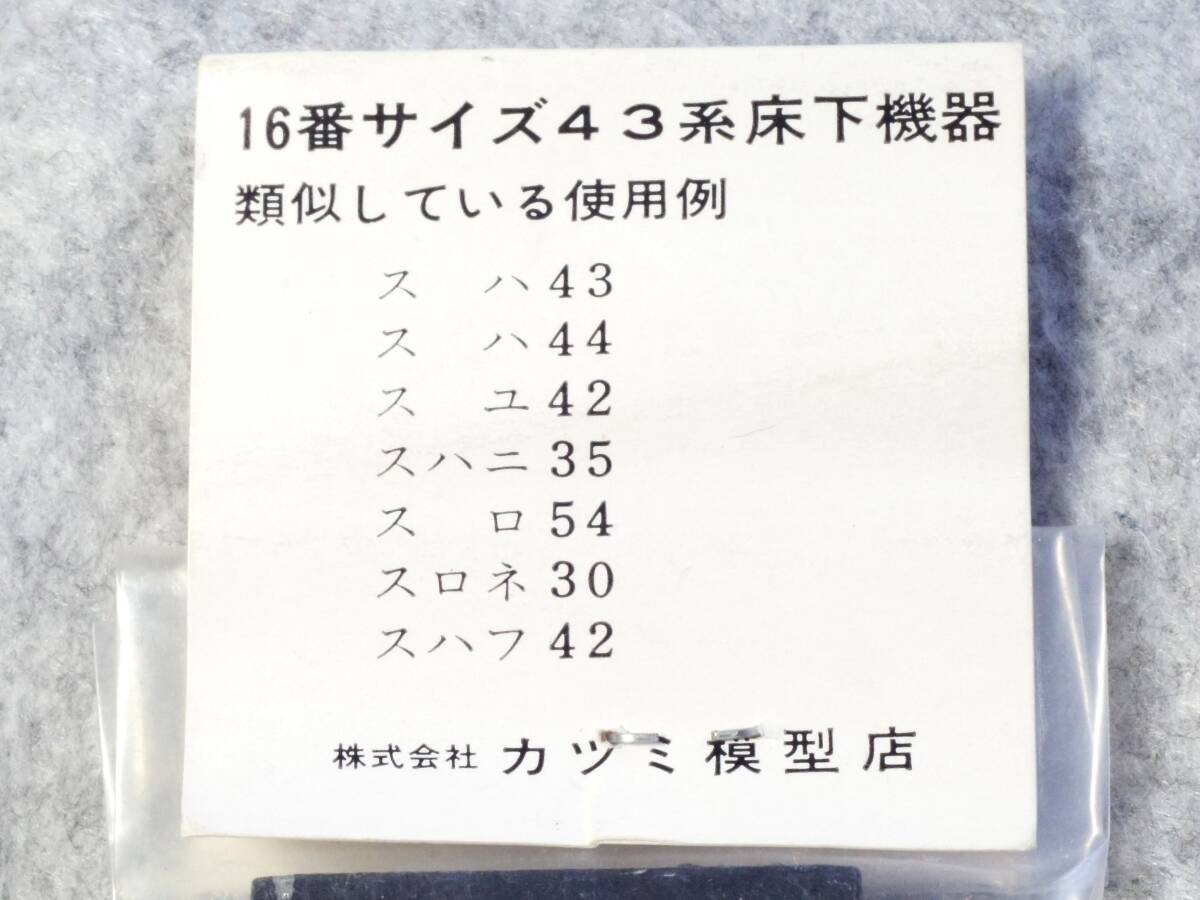 16番サイズ43系床下機器
類似している使用例
スハ43
スハ44
スユ42
スハニ35
スロ54
スロネ30
スハフ42
株式会社 カツミ模型店